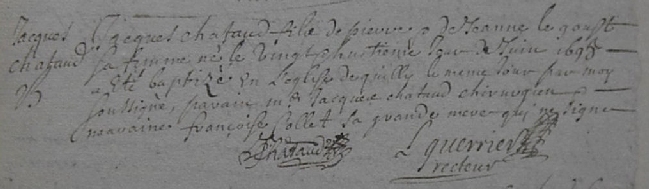 Jacques
chataud
Jacques chataud fils de pierre & de Jeanne le goust
sa femme né le vingt & huictieme Jour de Juin 1698
a été baptizé en L'eglise de quilly le meme Jour par moy
soussigné, parain Jacques chataud chirurgien
maraine françoise Collet sa grande mere qui ne signe
Chataud
L guerrier
recteur